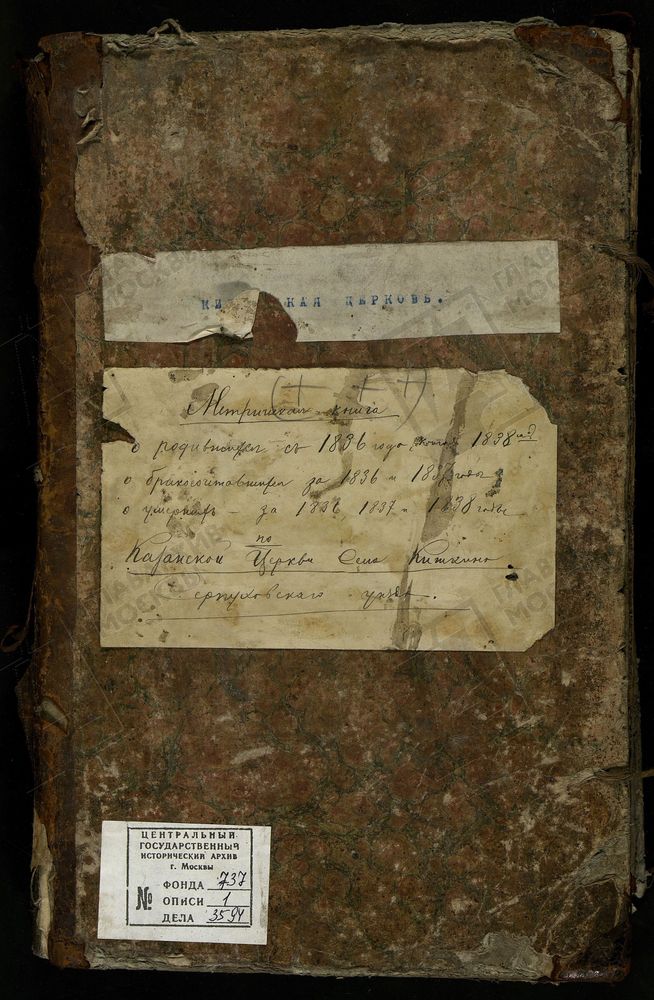 КИ КАЯ ЦЕРКОВЬ.
(+ + +)
Метрическая книга
о родившихся съ 1836 года, 1838 год
о бракосочетавшихся за 1836 и 1837 годы
о умершихъ – за 1836, 1837 и 1838 годы
по
Казанской Церкви Села Киткино
серпуховскаго уезда.
ЦЕНТРАЛЬНЫЙ
ГОСУДАРСТВЕННЫЙ
ИСТОРИЧЕСКИЙ АРХИВ
г. Москвы
№
ФОНДА 737
ОПИСИ 1
ДЕЛА 3594